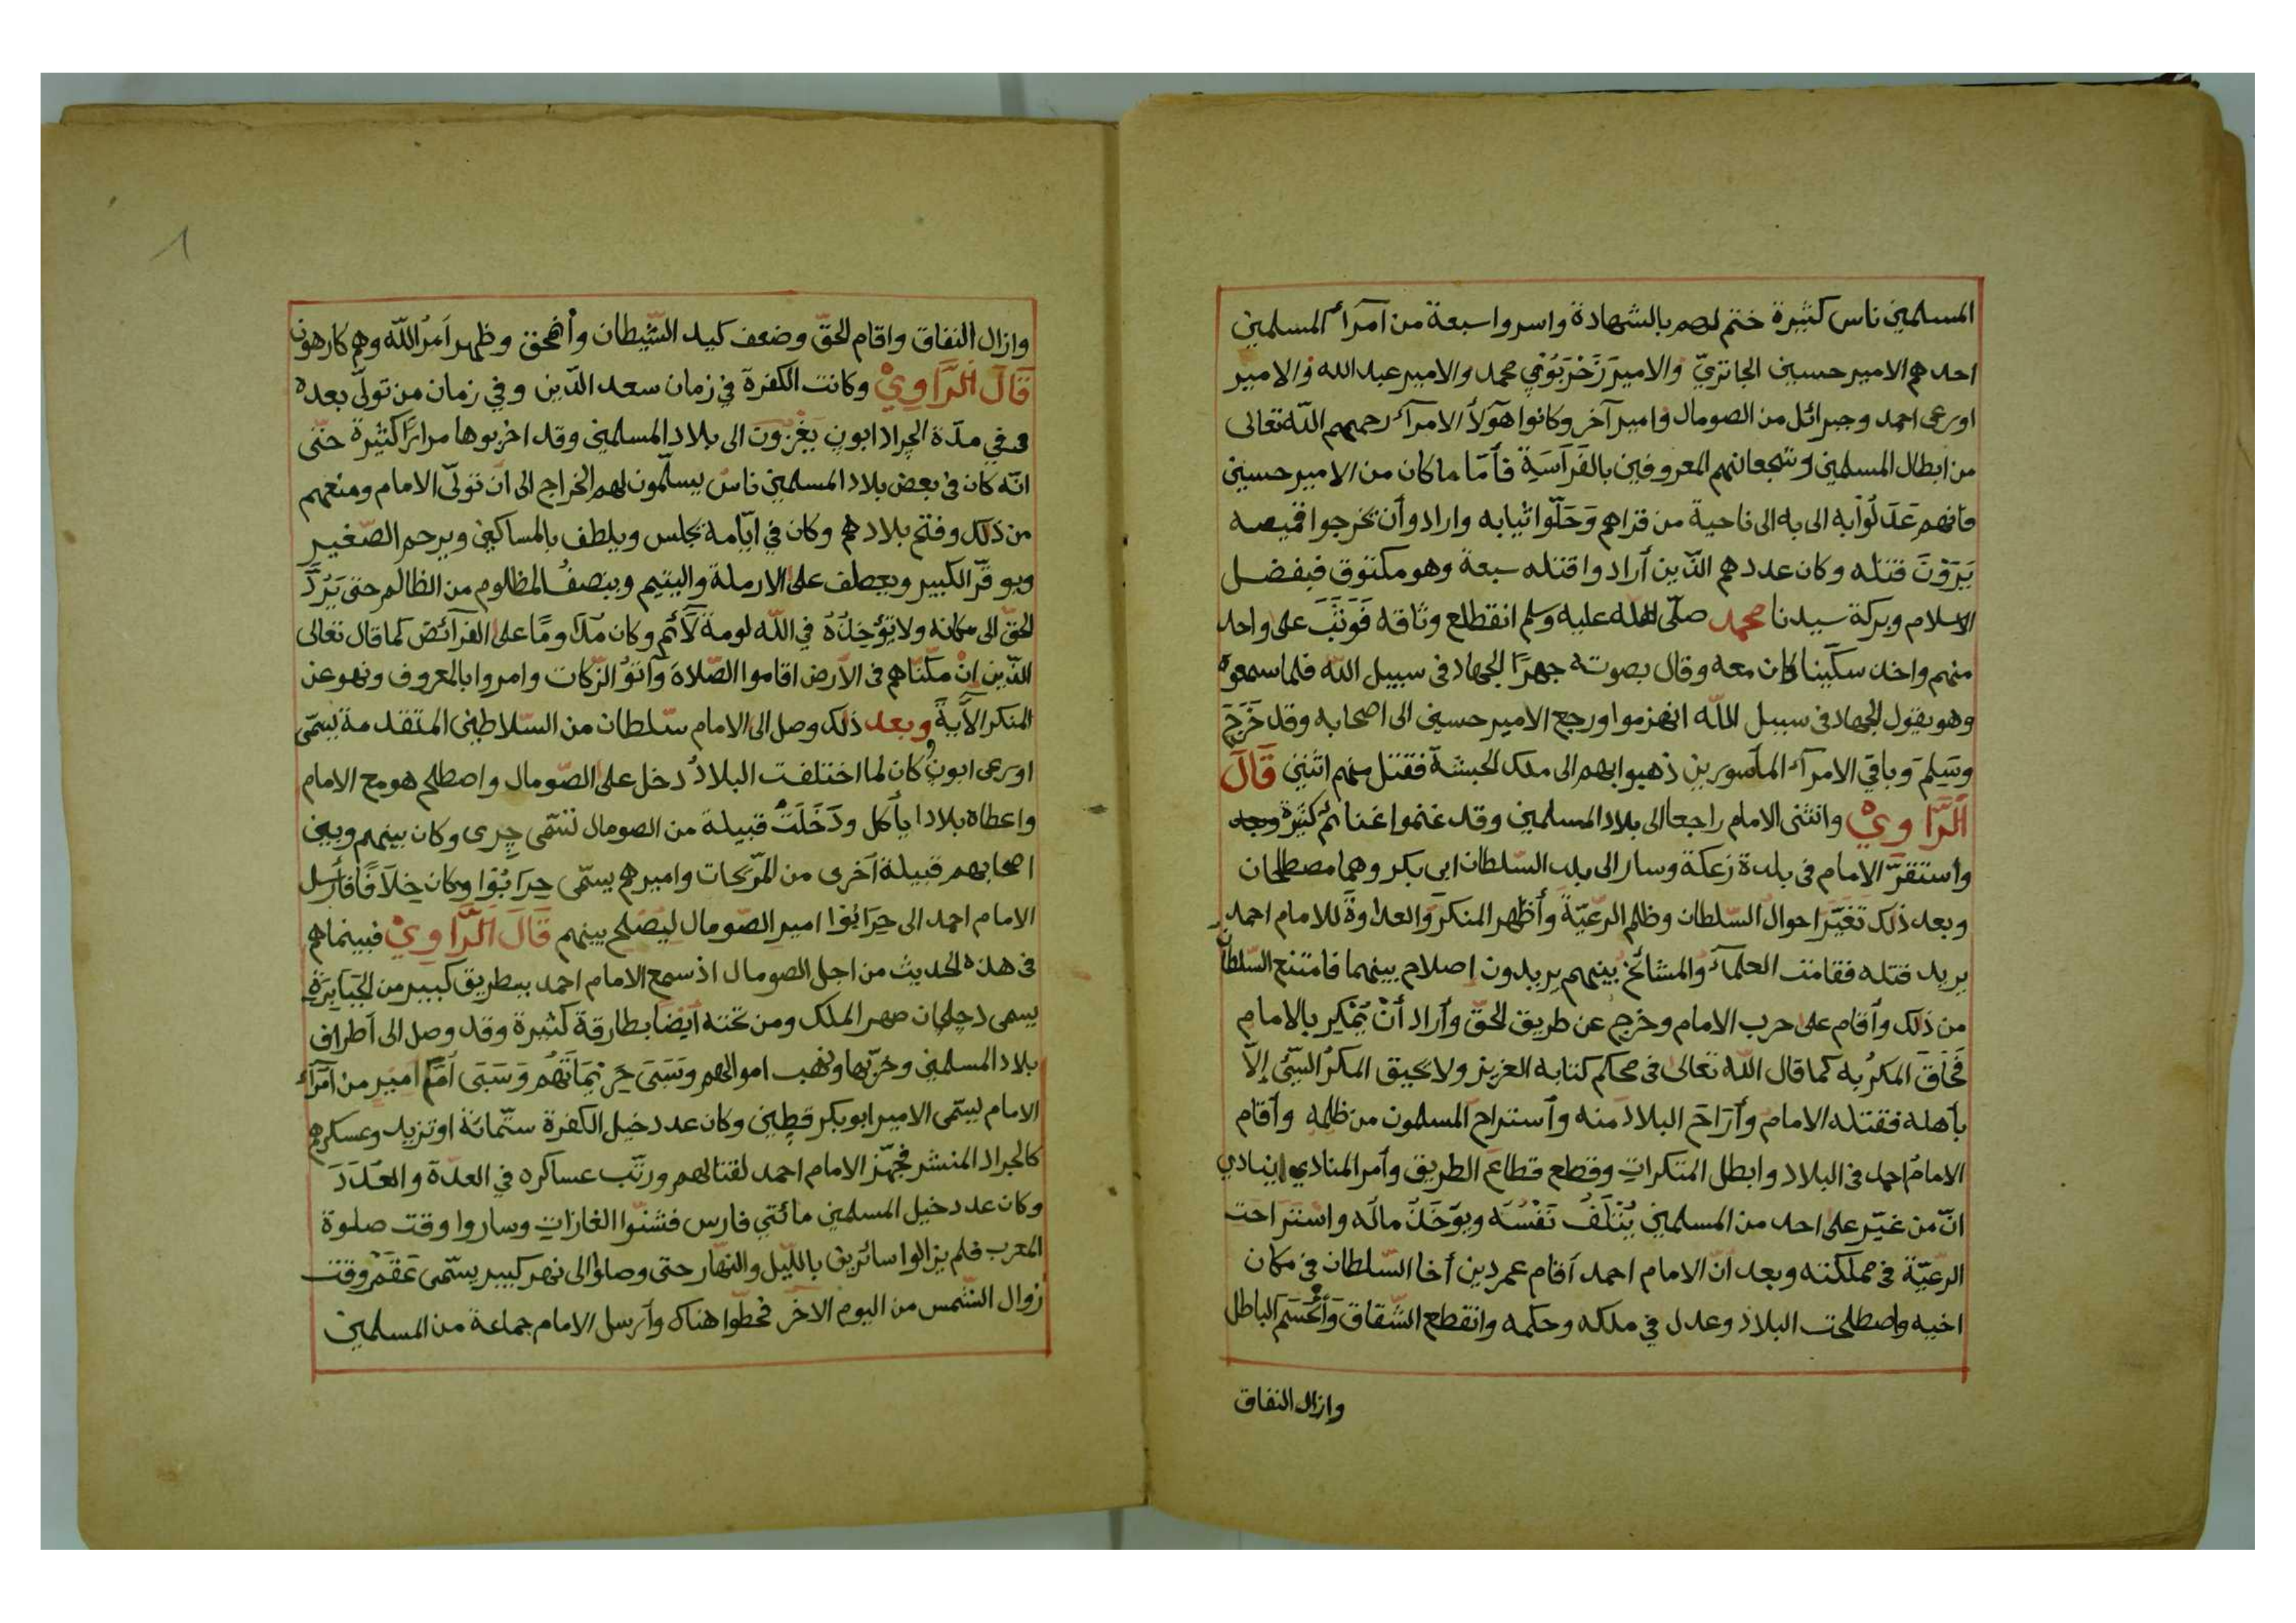 المسلمين ناس كثيرة ختم لهم بالشهادة واسروا سبعة من امرآء المسلمين
احدهم الامير حسين الجاتري والامير زَحْرَبُوْي محمد والامير عبد الله والامير
اورعى احمد وجبرائل من الصومال وامير آخر وكانوا هؤلآ الامرآء رحمهم الله تعالى
من ابطال المسلمين وشجعانهم المعروفين بالفَرَاسَيَة فأمّا ما كان من الامير حسين
فانهم عَدَلُوْا به الى به الى ناحية من قراهم وَحَلّوا ثيابه وارادو أن يخرجوا قميصه
يَرَوْنَ قتله وكان عددهم الذين أرادوا قتله سبعة وهو مكتوف فبفضل
الاسلام وبركة سيدنا محمد صلّى الله عليه وسلم انقطع وثاقه فَوَثَبَ على واحد
منهم واخذ سكّينا كان معه وقال بصوته جهرًا الجهاد في سبيل الله فلما سمعوه
وهو يقول الجهاد في سبيل الله انهزموا ورجع الامير حسين الى اصحابه وقد خَرَجَ
وسَلِمَ وباقي الامرآء المأسورين ذهبوا بهم الى ملك الحبشة فقتل منهم اثنين قَالَ
اَلرَّاوِيْ وانثنى الامام راجعا الى بلاد المسلمين وقد غنموا غنائم كثيرة وجاء
واستقرّ الامام في بلدة زعكة وسار الى بلد السّلطان ابى بكر وهما مصطلحان
وبعد ذلك تَغَيّرَ احوال السّلطان وظلم الرّعيّة وأظهر المنكر والعداوة للامام احمد
يريد قتله فقامت العلمآء والمشائخ بينهم يريدون إصلاح بينهما فامتنع السّلطان
من ذلك وأقام على حرب الامام وخرج عن طريق الحقّ وأراد أنْ يَمْكِر بالامام
فَحَاقَ المكرُ به كما قال الله تعالى في محكم كتابه العزيز ولا يحيق المكرُ السيّئُ إلاّ
بأهله فقتله الامام وأرَاحَ البلاد منه وأستراح المسلمون من ظلمه وأقام
الامامُ احمد في البلاد وابطل المنكراتِ وقطع قطاعَ الطريق وأمر المنادي ينادي
انّ من غيّر على احد من المسلمين يُتْلَفُ نَفْسُه ويؤخَذُ مالُه واستراحت
الرعيّة في مملكته وبعد انّ الامام احمد أقام عمر دين أخا السّلطان في مكان
اخيه واصطلحت البلاد وعدل في ملكه وحكمه وانقطع الشّقاق وَأنْحَسَمَ الباطل
وازال النفاق
وازال النفاق واقام الحقّ وضعف كيد الشّيطان وأضحق وظهر اَمرُ الله وهم كارهون
قَالَ اَلرَّاوِيْ وكانت الكفرة في زمان سعد الدّين وفي زمان من تولّى بعده
في مدّة الجراد ابون يَغْزُوْن الى بلاد المسلمين وقد اخربوها مرارًا كثيرة حتّى
انّه كان في بعض بلاد المسلمين ناسٌ يسلّمون لهم الخراج الى ان تولّى الامام ومنعهم
من ذلك وفتح بلادهم وكان في ايّامه يجلس ويلطف بالمساكين ويرحم الصّغير
ويوقّر الكبير ويعطف على الارملة واليتيم وينصفُ المظلوم من الظالم حتى يَرُدَّ
الحقّ الى مكانه ولا تؤخذُهُ في الله لومة لآئم وكان مُدَاومًا على الفرآئض كما قال تعالى
الّذين إنْ مكّنّاهم في الأرض اقاموا الصّلاة وآتوُ الزّكات وامروا بالمعروف ونهو عن
المنكر الأية وبعد ذلك وصل الى الامام سّلطان من السّلاطين المتقدمة يسمّى
اورعى ابون كان لما اختلفت البلاد دخل على الصّومال واصطلح هو مع الامام
واعطاه بلادا يأكل ودَخَلَتْ قبيلة من الصومال تسَمّى چرى وكان بينهم وبين
اصحابهم قبيلة آخرى من المرّيحات واميرهم يسمّى حِرَابُوْا وكان خِلَافًا فأرسل
الامام احمد الى حِرَابُوْا امير الصّومال ليُصْلح بينهم قَالَ اَلرَّاوِيْ فبينماهم
في هذه الحديث من اجل الصومال اذ سمع الامام احمد ببطريق كبير من الجَبَابِرَةِ
يسمى دجلحان صهر الملك ومن تحته أيْضًا بطارقة كثيرة وقد وصل الى أطراف
بلاد المسلمين وخرّبها ونهب اموالهم وسَبَى حَرِيْمَاتَهُم وَسَبَى اُمَّ امير من امَرآء
الامام يسمّى الامير ابو بكر قطين وكان عدد خيل الكفرة ستّمائة او تزيد وعسكرهم
كالجراد المنشر فجهّز الامام احمد لقتالهم ورتّب عساكره في العدّة والعَدَدَ
وكان عدد خيل المسلمين مائتي فارس فشنّوا الغاراتِ وساروا وقت صلوة
المغرب فلم يزالوا سائرين باللّيل والنّهار حتى وصلوا الى نهر كبير يسمّى عَقَمْ وقت
زوال الشّمس من اليوم الاخر فحطّوا هناك وأرسل الامام جماعة من المسلمين